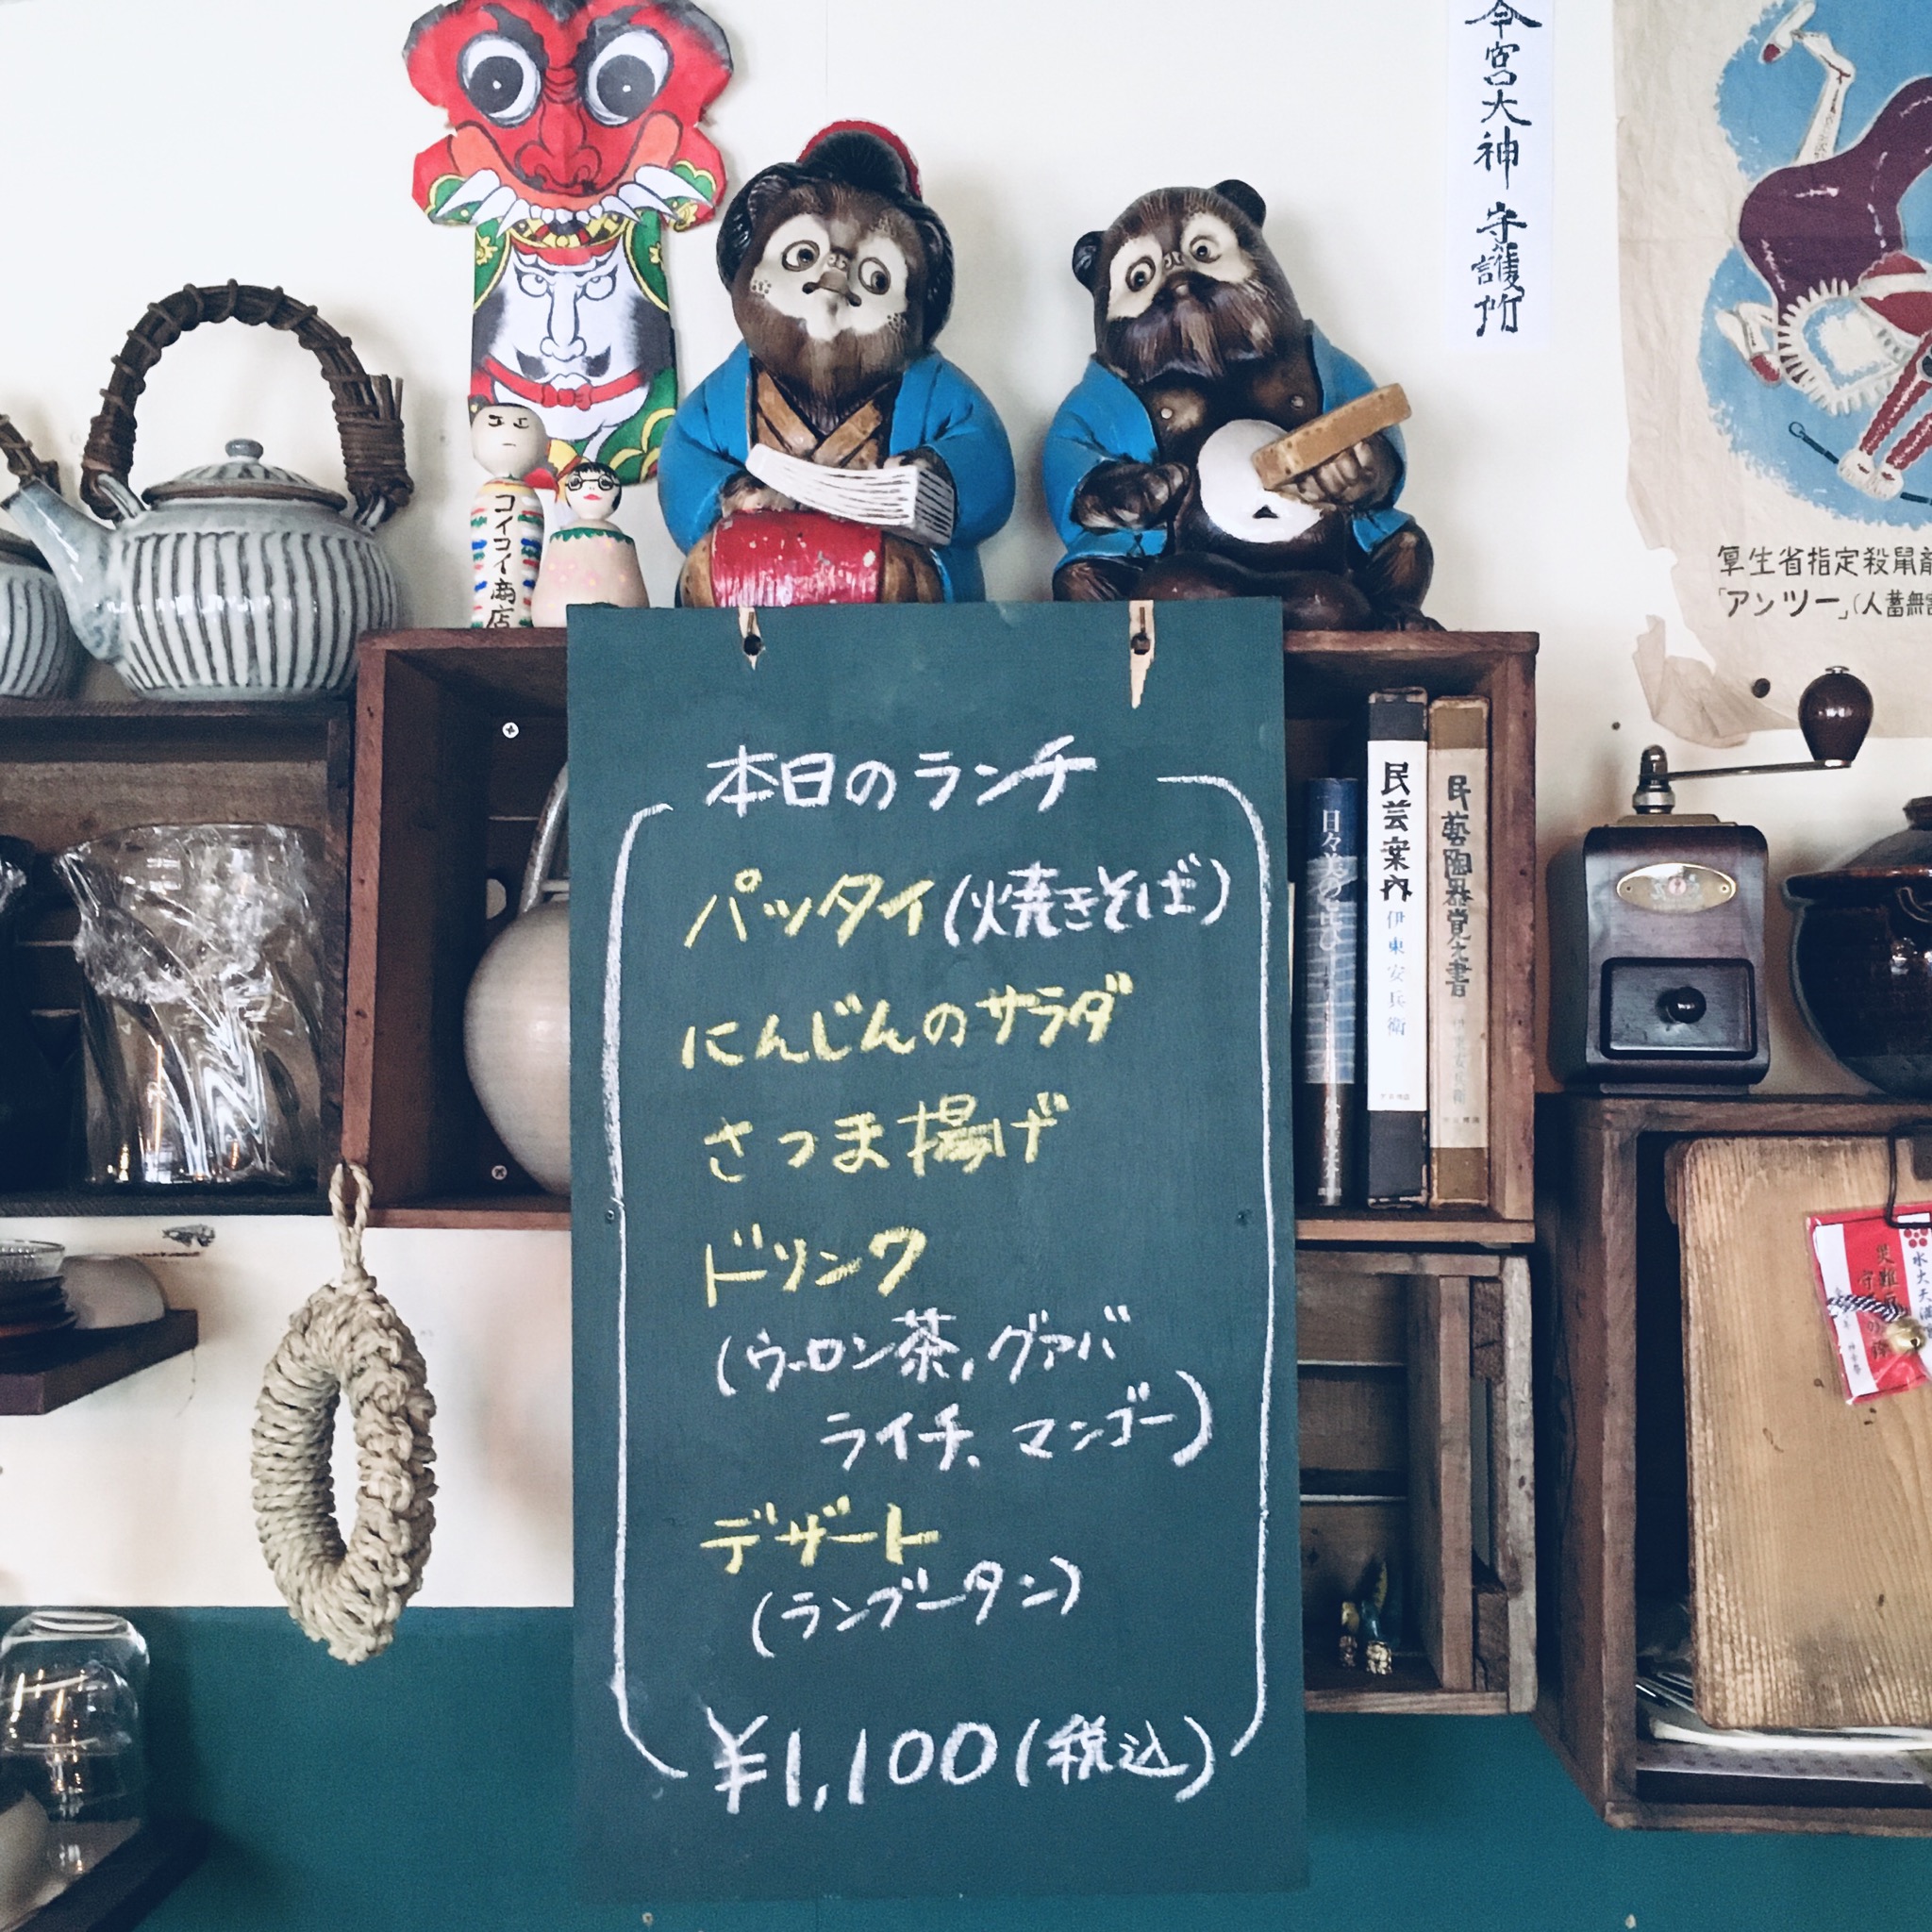 今宮大神 守護所
コイコイ商店
厚生省指定殺鼠剤
「アンツー」(人畜無害
本日のランチ
パッタイ(焼きそば)
にんじんのサラダ
さつま揚げ
ドリンク
(ウーロン茶,グァバ
ライチ、マンゴー)
デザート
(ランブータン)
¥1,100(税込)
民芸案内 伊東安兵衛
民藝陶器覚え書